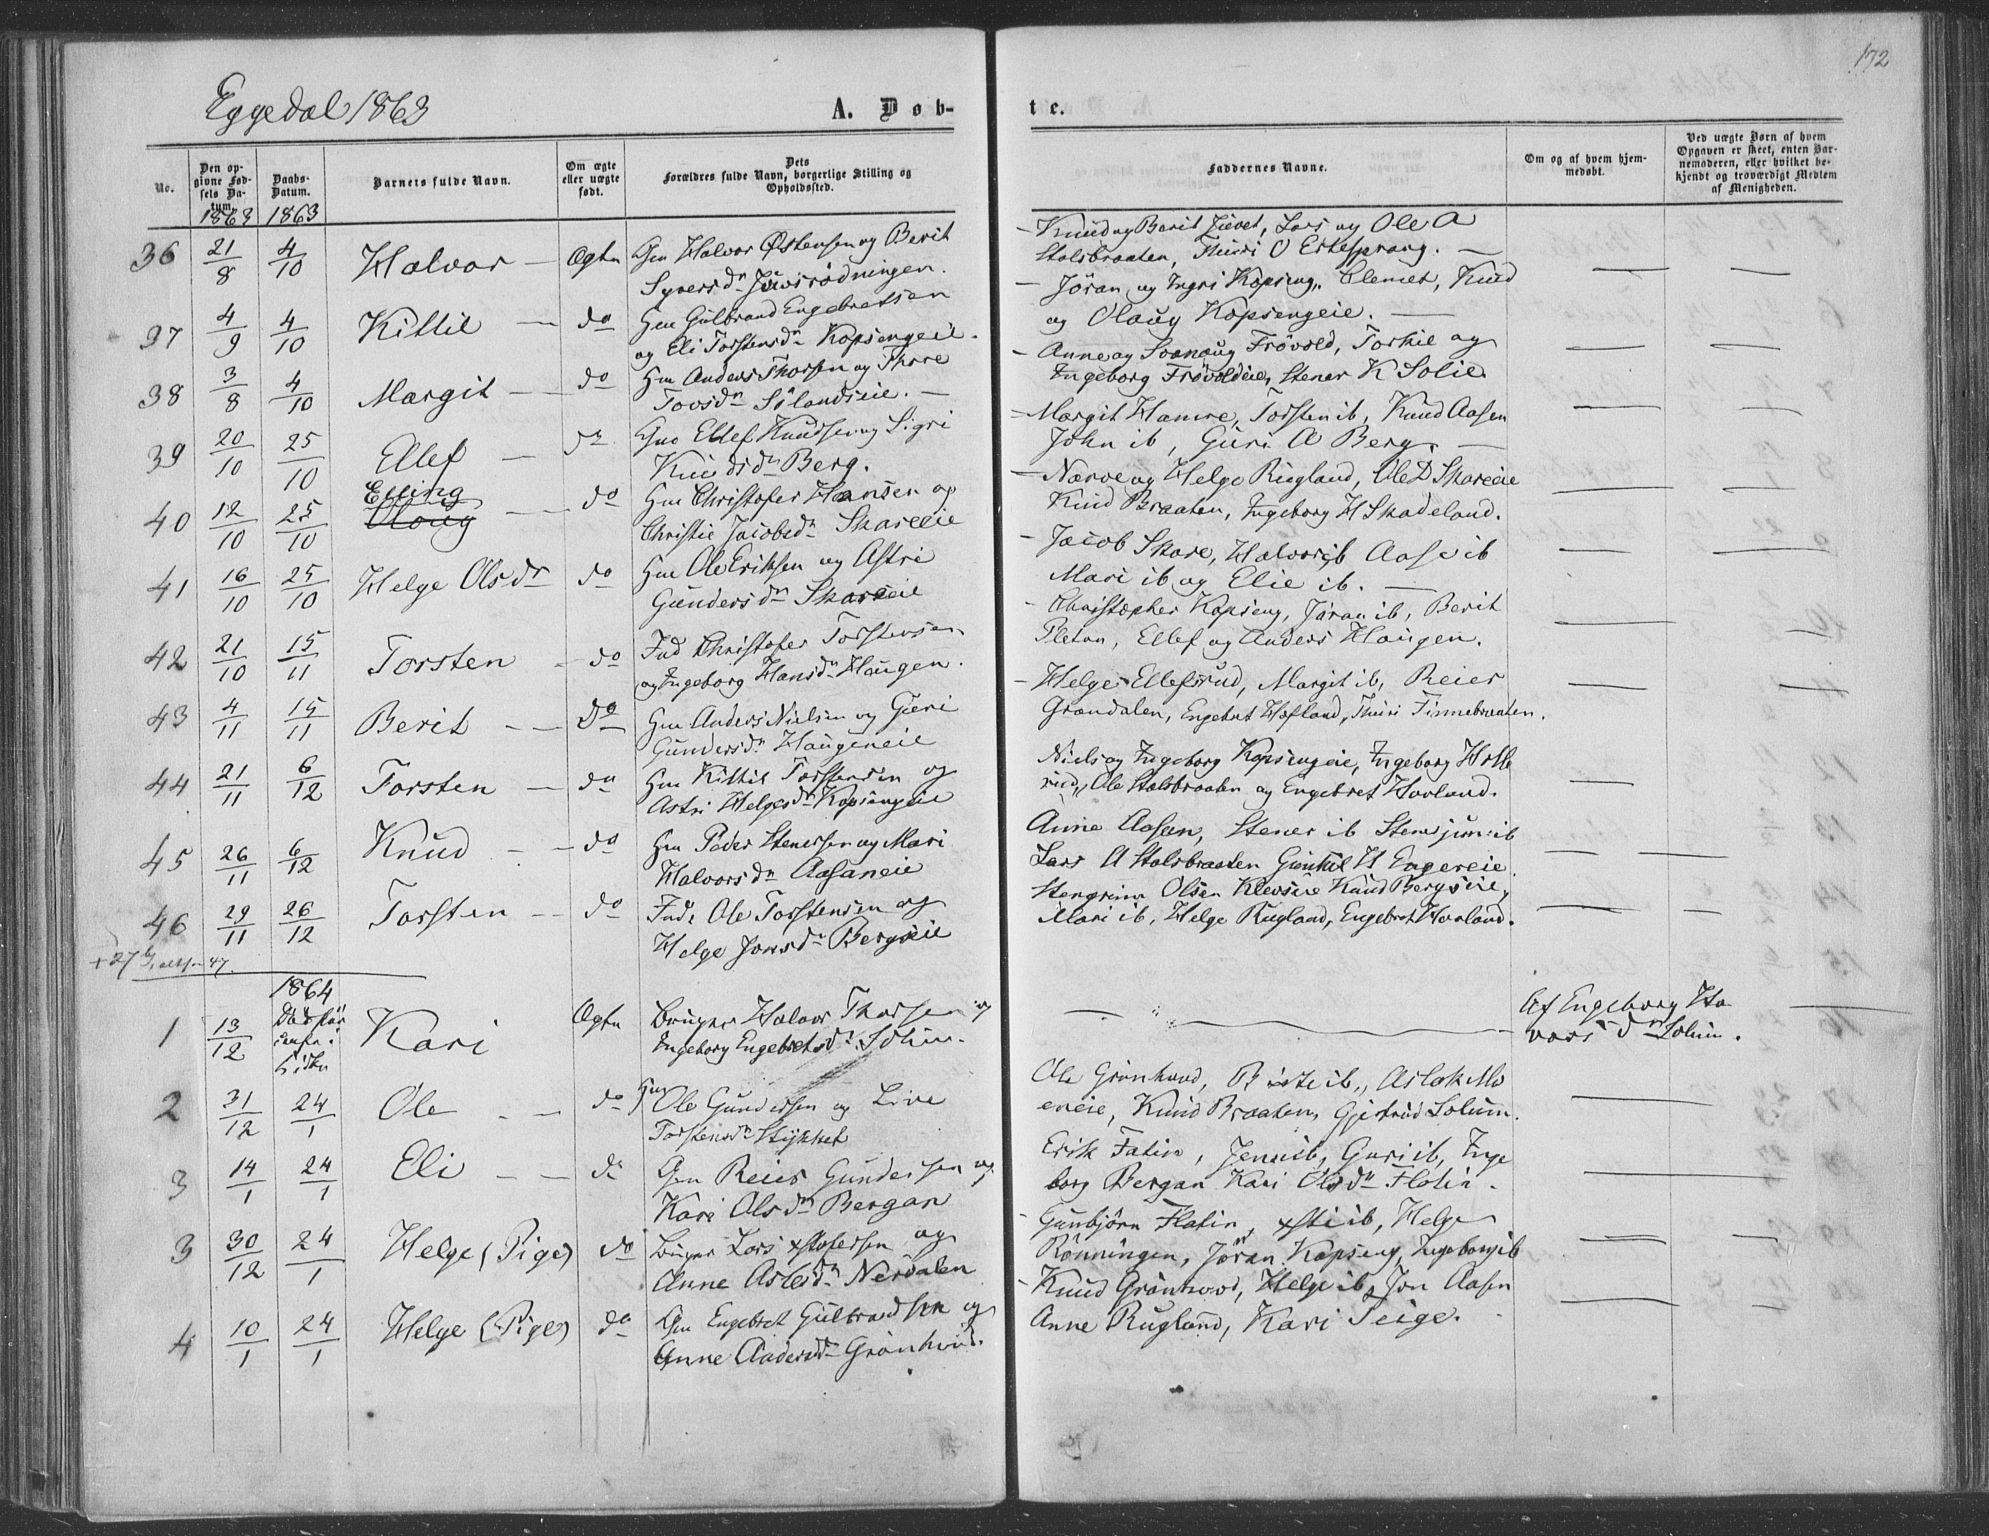 172
Eggedal 1863
A. Døb-
te.
No.
Den opgivne Fødsels Datum.
Daabs-Datum.
Barnets fulde Navn.
Om ægte eller uægte født.
Dets Forældres fulde Navn, borgerlige Stilling og Opholdssted.
Faddernes Navne.
Om og af hvem hjemmedøbt.
Ved uægte Børn af hvem Opgaven er skeet, enten Barnemoderen, eller hvilket bekjendt og troværdigt Medlem af Menigheden.
1863 1863
36 21/8 4/10 Halvor — Ægte Gm Halvor Østensen og Berit
Syversdr
Knud og Berit Juvet, Lars og Ole A
Stolsbraaten, Thuri O Eskesprang. —
37 4/9 4/10 Kittil — do Hm Gulbrand Engebretsen
og Eli Torstensdr Kopsengeie.
— Jøran og Ingri Kopseng, Clemet, Knud
og Olaug Kopsengeie. —
38 3/8 4/10 Margit — do Hm Anders Thorsen og Thore
Tovsdr Sølandseie. —
— Anne og Svanaug Frøvold, Torkie og
Ingeborg Frøvoldeie, Stener K Solie
39 20/10 25/10 Ellef — do Ellef Knudsen og Sigri
Knudsdr Berg.
— Margit Hamre, Torsten ib, Knud Aasen
John ib, Guri A Berg. —
40 12/10 25/10 Elling
Olaug — do Hm Christofer Hansen og
Christie Jacobsdr Skareeie
— Narve og Helge Rugland, Ole D Skareeie
Knud Braaten, Ingeborg H Skadeland.
41 16/10 25/10 Helge Olsdr do Hm Ole Eriksen og Astri
Gundersdr Skareeie
— Jacob Skare, Halvor ib Aase ib
Mari ib og Elie ib. —
42 21/10 15/11 Torsten — do Ind Christofer Torstensen
og Ingeborg Hansdr Haugen.
— Christopher Kopseng, Jøran ib, Berit
Pleton, Ellef og Anders Haugen.
43 4/11 15/11 Berit — do Hm Anders Nielsen og Guri
Gundersdr Haugeneie
— Helge Ellefsrud, Margit ib, Reier
Grøndalen, Engebret Hafland, Thuri Finnebraaten.
44 21/11 6/12 Torsten — do Hm Kittil Torstensen og
Astri Helgesdr Kopsengeie
Niels og Ingeborg Kopsengeie, Ingeborg Holle
rud, Ole Stolsbraaten og Engebret Hovland.
45 26/11 6/12 Knud — do Hm Peder Stenersen og Mari
Halvorsdr Aasaneie
Anne Aasen, Stener ib Stener jun: ib
Lars A Stolsbraaten Gunhil H Engereie.
46 29/11 26/12 Torsten — do Inds Ole Torstensen og
Helge Jonsdr Bergseie
Stengrim Olsen Klevseie Knud Bergseie,
Mari ib, Helge Rugland, Engebret Hovland.
+27 b, altsaa 47.
1864
1 13/12 Kari Ægte Bruger Halvor Thorsen og
Ingeborg Engebretsdr Solum.
Af Engeborg Ha
vorsdr Solum.
2 31/12 24/1 Ole — do Hm Ole Gundersen og Live
Torstensdr Stykket
Ole Grønhovd, Birte ib, Aslak Mo
eneie, Knud Braaten, Gjertrud Solum.
3 14/1 24/1 Eli — do Gm Reier Gundersen og
Kari Olsdr Bergan
Erik Flatin, Jens ib, Guri ib, Inge
borg Bergan Kari Olsdr Flatin.
3 30/12 24/1 Helge (Pige) do Bruger Lars xstofersen og
Anne Aslesdr Nerdalen
— Gunbjørn Flatin, xsti ib, Helge
Rønningen, Jøran Kopseng, Ingeborg ib
4 10/1 24/1 Helge (Pige) do Gm Engebret Gulbrandsen og
Anne Andersdr Grønhovd.
— Knud Grønhovd, Helge ib, Jon Aasen
Anne Rugland, Kari Teige.